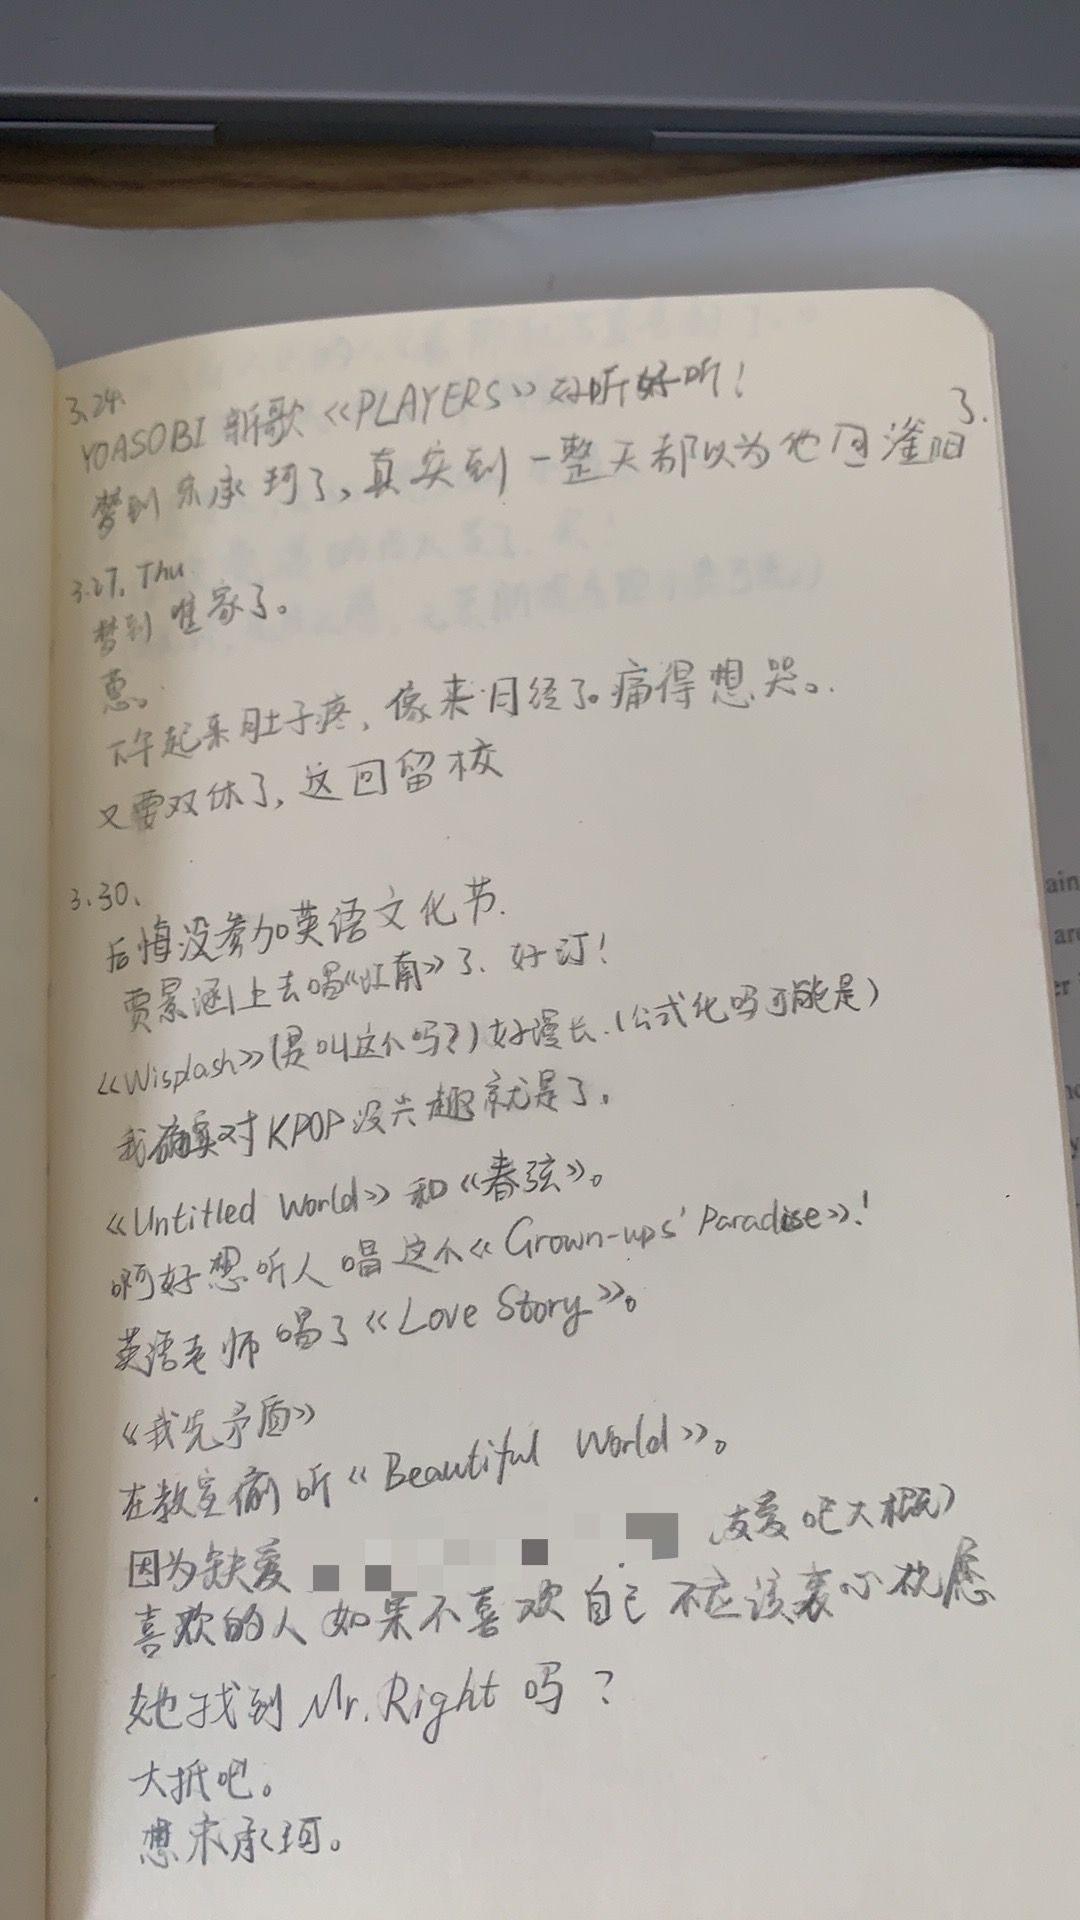 3.24.
YOASOBI 新歌《PLAYERS》好听好听！
3.
梦到宋承珂了，真实到一整天都以为他回滏阳
3.27. Thu
梦到谁家了。
恵。
下午起来肚子疼，像来月经了。痛得想哭。
又要双休了，这回留校
3.30.
后悔没参加英语文化节.
贾景涵上去唱《江南》了、好汀！
《Wisplash》(是叫这个吗?)好漫长.(公式化吗可能是)
我确实对KPOP没兴趣就是了.
《Untitled World》和《春弦》。
啊好想听人唱这个《Grown-ups' Paradise》!
英语老师唱了《Love Story》。
《我先矛盾》
在教室偷听《Beautiful World》。
因为缺爱 (友爱吧大概)
喜欢的人如果不喜欢自己不应该衷心祝愿
她找到Mr. Right吗？
大抵吧。
想宋承珂。